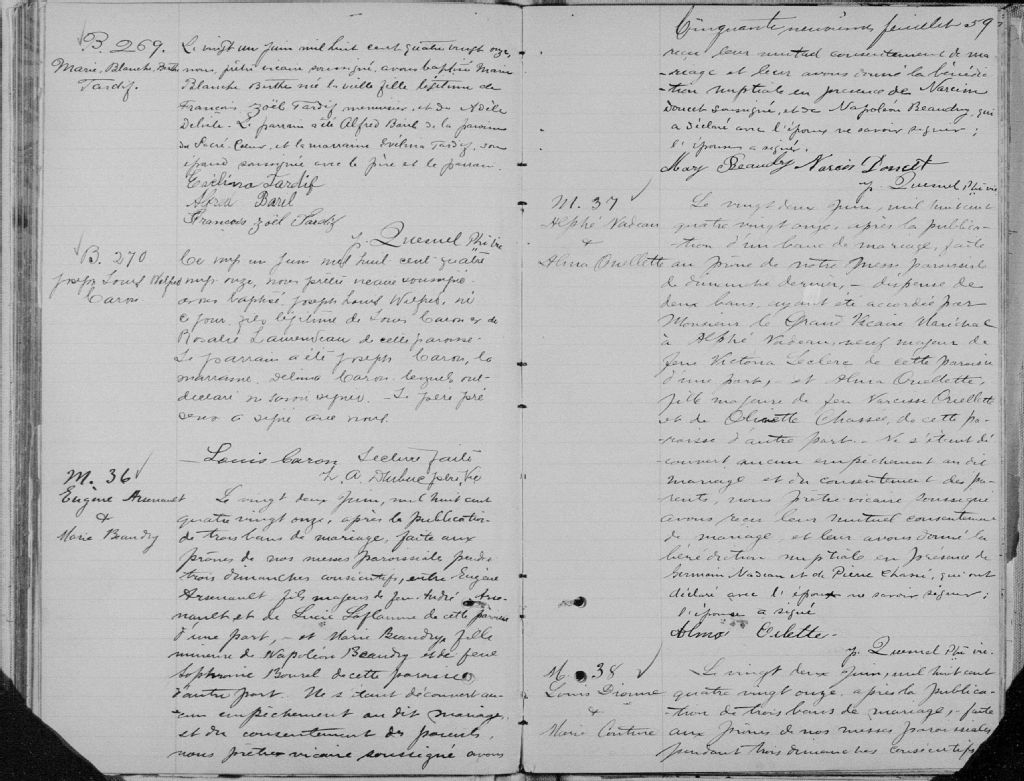 B. 269.
Marie, Blanche, Berthe
Tardif.
Le vingt un juin mil huit cent quatre vingt onze,
nous, prêtre vicaire, soussigné, avons baptisé Marie
Blanche Berthe née la veille fille légitime de
François Zoël Tardif menuisier, et de Adèle
Delisle. Le parrain a été Alfred Baril de la paroisse
du Sacré-Coeur, et la marraine Evélina Tardif, son
épouse soussignée avec le père et le parrain.
Evélina Tardif
Alfred Baril
François Zoël Tardif
J. Quesnel Ptre vic
B. 270
Joseph Louis Wilfred
Caron
Le vingt un juin mil huit cent quatre
vingt onze, nous prêtre vicaire soussigné
avons baptisé Joseph Louis Wilfred, né
ce jour, fils légitime de Louis Caron et de
Rosalie de cette paroisse.
Le parrain a été Joseph Caron, la
marraine Delima Caron lesquels ont
déclaré ne savoir signer. Le père pré
sent a signé avec nous.
Louis Caron Lecture faite
L. A. ptre, Vic
M. 36
Eugène Arsenault
&
Marie Beaudry
Le vingt deux Juin, mil huit cent
quatre vingt onze, après la publication
de trois bans de mariage, faite aux
prônes de nos messes paroissiale pendt
trois dimanches consécutifs, entre Eugène
Arsenault fils majeur de feu André Arse-
nault et de Lucie Laflamme de cette paroisse
d'une part, - et Marie Beaudry fille
mineure de Napoléon Beaudry et de feue
Sophronie Bourel de cette paroisse
d'autre part. Ne s'étant découvert au-
cun empêchement au dit mariage,
et du consentement des parents,
nous prêtre vicaire soussigné avons
Cinquante neuvième feuillet 59
reçu leur mutuel consentement de ma-
riage et leur avons donné la bénédic-
tion nuptiale en présence de Narcisse
Doucet soussigné, et de Napoléon Beaudry, qui
a déclaré avec l'époux ne savoir signer;
l'épouse a signé.
Mary Beaudry Narcis Doucet
J. Quesnel Ptre vic
M. 37
Alphé Nadeau
&
Alma Ouellette
Le vingt deux Juin, mil huit cent
quatre vingt onze, après la publica-
tion d'un banc de mariage, faite
au prône de notre messe paroissiale
de dimanche dernier, - dispense de
deux bans, ayant été accordée par
Monsieur le Grand Vicaire Maréchal
à Alphé Nadeau, veuf majeur de
feue Victoria Leclerc de cette paroisse
d'une part, - et Alma Ouellette,
fille majeure de feu Narcisse Ouellette
et de Chassée, de cette pa-
roisse d'autre part. - Ne s'étant dé
couvert aucun empêchement au dit
mariage et du consentement des pa-
rents, nous prêtre vicaire soussigné
avons reçu leur mutuel consentement
de mariage et leur avons donné la
bénédiction nuptiale en présence de
Germain Nadeau et de Pierre Chassé, qui ont
déclaré avec l'époux ne savoir signer;
l'épouse a signé
Alma Oilette
J. Quesnel Ptre vic.
M. 38
Louis Dionne
&
Marie Couture
Le vingt deux Juin, mil huit cent
quatre vingt onze, après la publica-
tion de trois bans de mariage, - faite
aux prônes de nos messes paroissiales
pendant trois dimanches consécutifs